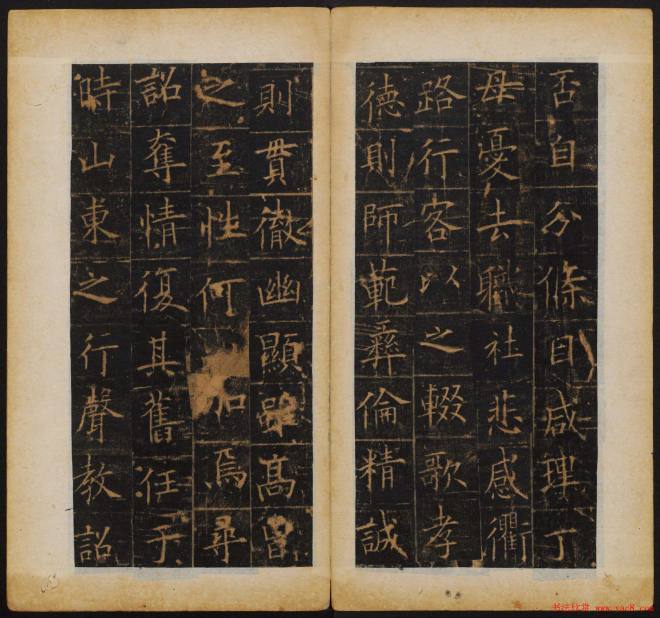 否自分條目咸理丁
母憂去職社悲感衢
路行客以之輟歌孝
德則師範彝倫精誠
則貫徹幽顯雖高曾
之至性何加焉尋
詔奪情復其舊任于
時山東之行聲教詔
书法欣赏 www.yac8.com